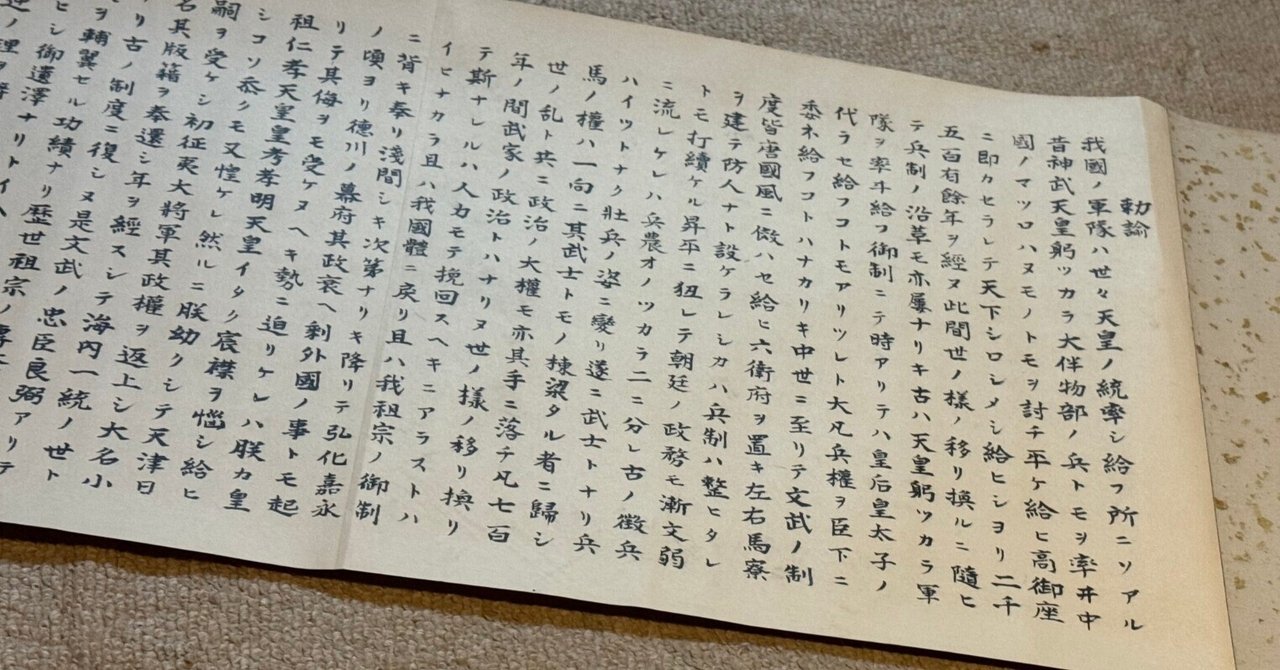 勅諭
我國ノ軍隊ハ世々天皇ノ統率シ給フ所ニソアル
昔神武天皇躬ツカラ大伴物部ノ兵トモヲ率井中
國ノマツロハヌモノトモヲ討チ平ケ給ヒ高御座
ニ即カセラレテ天下シロシメシ給ヒシヨリ二千
五百有餘年ヲ經ヌ此間世ノ樣ノ移リ換ルニ隨ヒ
テ兵制ノ沿革モ亦屢ナリキ古ハ天皇躬ツカラ軍
隊ヲ率井給フ御制ニテ時アリテハ皇后皇太子ノ
代ラセ給フコトモアリツレト大凡兵權ヲ臣下ニ
委ネ給フコトハナカリキ中世ニ至リテ文武ノ制
度皆唐國風ニ傚ハセ給ヒ六衛府ヲ置キ左右馬寮
ヲ建テ防人ナト設ケラレシカハ兵制ハ整ヒタレ
トモ打續ケル昇平ニ狃レテ朝廷ノ政務モ漸文弱
ニ流レケレハ兵農オノツカラ二ニ分レ古ノ徴兵
ハイツトナク壯兵ノ姿ニ變リ遂ニ武士トナリ兵
馬ノ權ハ一向ニ其武士トモノ棟梁タル者ニ歸シ
世ノ乱ト共ニ政治ノ大權モ亦其手ニ落チ凡七百
年ノ間武家ノ政治トハナリヌ世ノ樣ノ移リ換リ
テ斯ナレルハ人力モテ挽回スヘキニアラストハ
イヒナカラ且ハ我國體ニ戻リ且ハ我祖宗ノ御制
ニ背キ奉リ淺間シキ次第ナリキ降リテ弘化嘉永
ノ頃ヨリ德川ノ幕府其政衰ヘ剰外國ノ事トモ起
リテ其侮ヲモ受ケヌヘキ勢ニ迫リケレハ朕カ皇
祖仁孝天皇皇考孝明天皇イタク宸襟ヲ惱シ給ヒ
シコソ忝クモ又惶ケレ然ルニ朕幼クシテ天津日
嗣ヲ受ケシ初征夷大將軍其政權ヲ返上シ大名小
名其版籍ヲ奉還シ年ヲ經スシテ海内一統ノ世ト
リ古ノ制度ニ復シヌ是文武ノ忠臣良弼アリテ
ヲ輔翼セル功績ナリ歴世祖宗ノ
ヒシ御遺澤ナリトイヘ